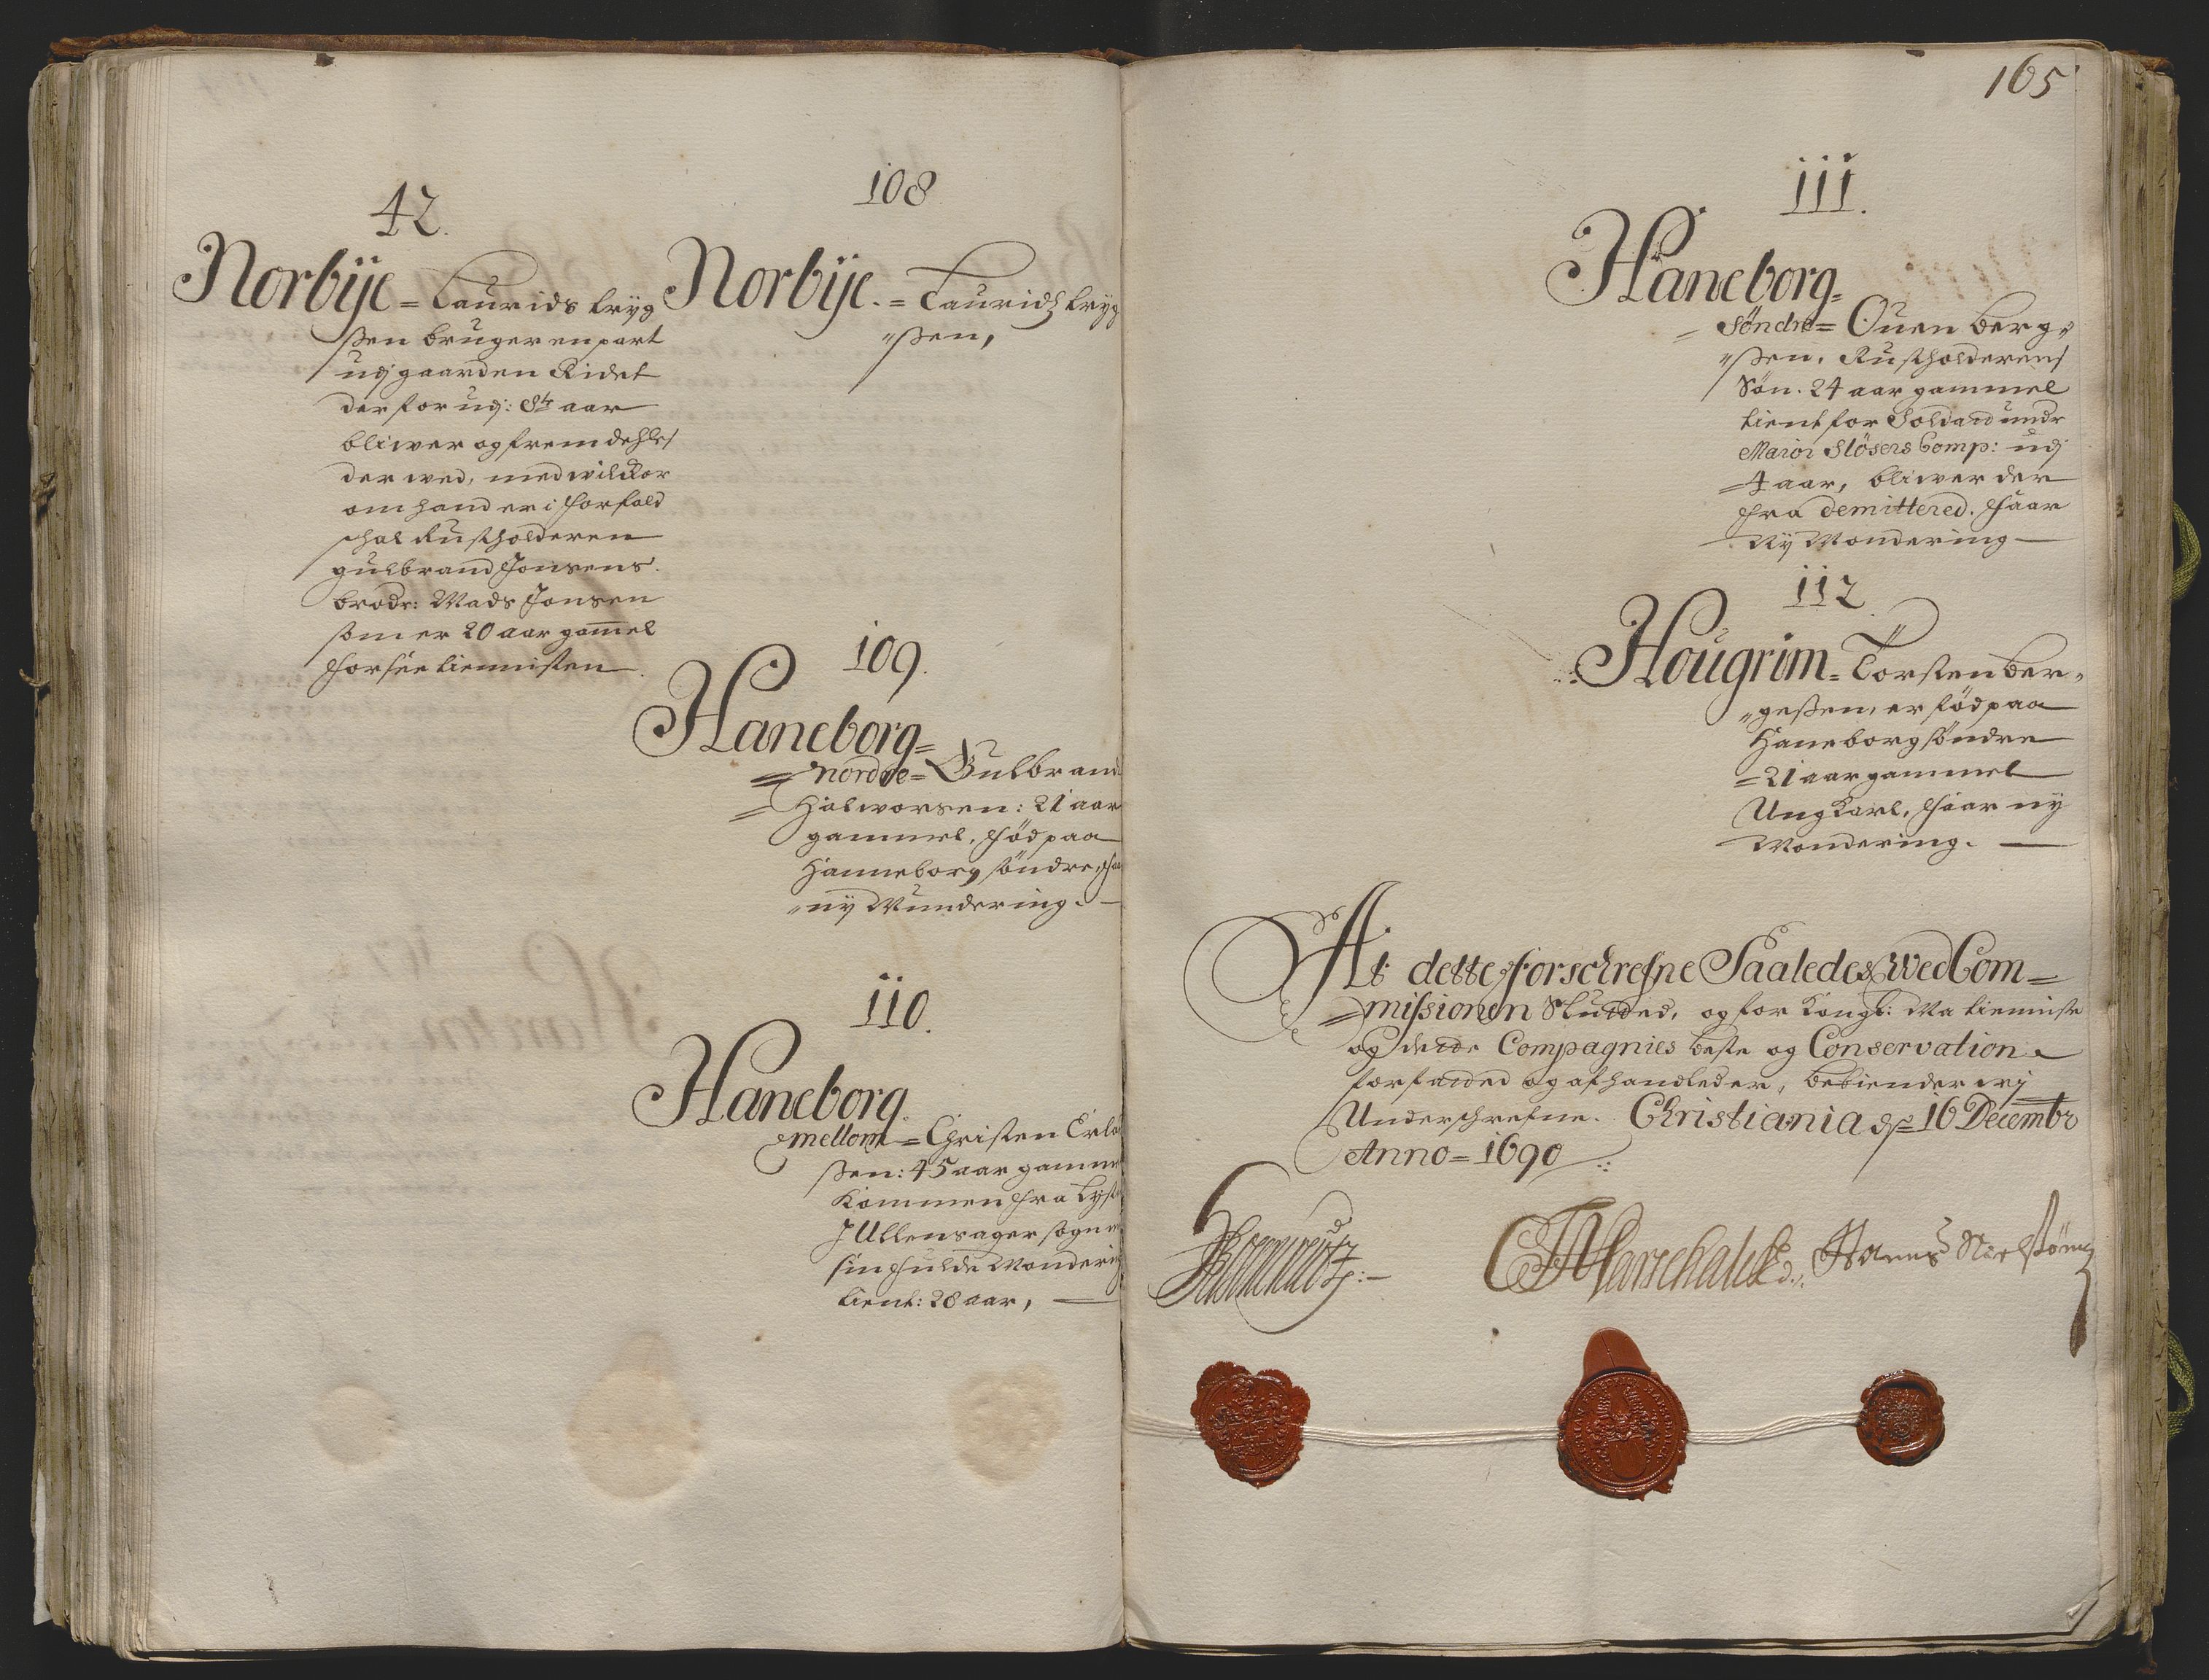 42.
Norbÿe = Laurids Tryg
ßen bruger en part
udj gaarden Ridet
der for udj: 8½ aar
bliwer og fremdehles
der wed, med wilckor
om hand er i forfald
schal Rustholderen
gulbrand Jonsens
brodr: Mads Jonsen
som er 20 aar gam̄el
forsee tiennisten
108
Norbÿe. = Lauridz Tryg
"ßen,
109.
Haneborg =
= nordre = Gulbrand
= Halworsen: 21 aar
gammel, fød paa
Hanneborg søndre, faa
"nÿ Mundering. —
110.
Haneborg
mellom = Christen Erla
ßen: 45 aar gamme
Kommen fra
J Ullensager sogn
sin fulde Monderin
tient: 28 aar, —
165
111.
Haneborg =
= Søndre = Ouen Berg "
"ßen, Rustholderens
Søn. 24 aar gammel
tient for Soldard undr
Maior Slösers Comp: udj
= 4 aar, bliwer der
fra demittered. faar
Nÿ Mondering —
112
Hougrim = Torsten Ber "
"geßen, er fød paa
Haneborg søndre
= 21 aar gammel
Ung Karl, faar nÿ
Mondering. —
At dette forschrefne Saaledes wed Com =
= missionen Slutted, og for Kongl: Ma tienniste
og dette Compagnies beste og Conservation
forfatted og afhandled er, bekiender wj
Underschrefne. Christiania dß 16 Decembr
Anno = 1690
CTMarschalck
Hanns